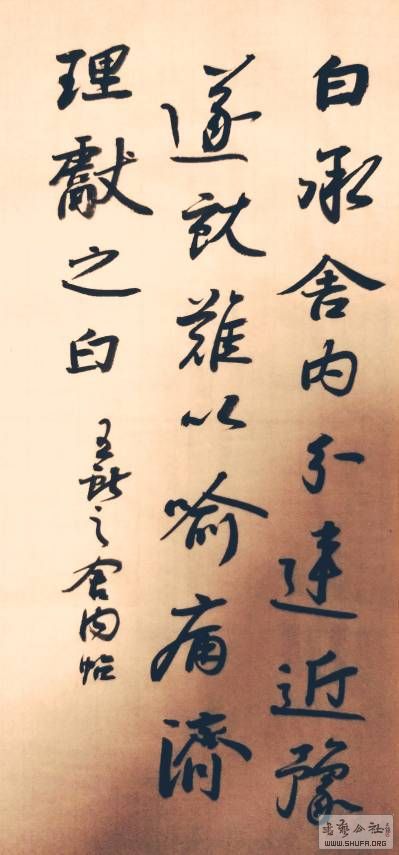 白承舍内分違近豫
遂就難以喻痛濟
理獻之白
王獻之舍内帖
書藝公社
WWW.SHUFA.ORG